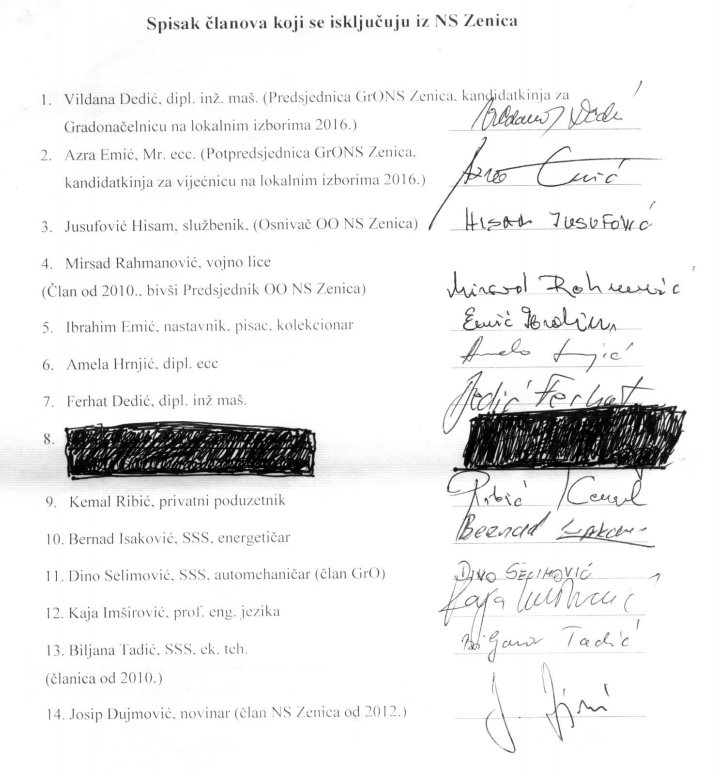 Spisak članova koji se isključuju iz NS Zenica
1. Vildana Dedić, dipl. inž. maš. (Predsjednica GrONS Zenica, kandidatkinja za
Gradonačelnicu na lokalnim izborima 2016.)
2. Azra Emić, Mr. ecc. (Potpredsjednica GrONS Zenica.
kandidatkinja za vijećnicu na lokalnim izborima 2016.) Azra Emić
3. Jusufović Hisam, službenik, (Osnivač OO NS Zenica) HISAM JUSUFOVIĆ
4. Mirsad Rahmanović, vojno lice
(Član od 2010., bivši Predsjednik OO NS Zenica) Mirsad Rahmanović
5. Ibrahim Emić, nastavnik, pisac, kolekcionar Emić Ibrahim
6. Amela Hrnjić, dipl. ecc
7. Ferhat Dedić, dipl. inž maš. Dedić Ferhat
8.
9. Kemal Ribić, privatni poduzetnik Ribić Kemal
10. Bernad Isaković, SSS, energetičar Bernad
11. Dino Selimović, SSS, automehaničar (član GrO) DINO SELIMOVIĆ
12. Kaja Imširović, prof. eng. jezika Kaja
13. Biljana Tadić, SSS, ek. teh. Biljana Tadić
(članica od 2010.)
14. Josip Dujmović, novinar (član NS Zenica od 2012.)